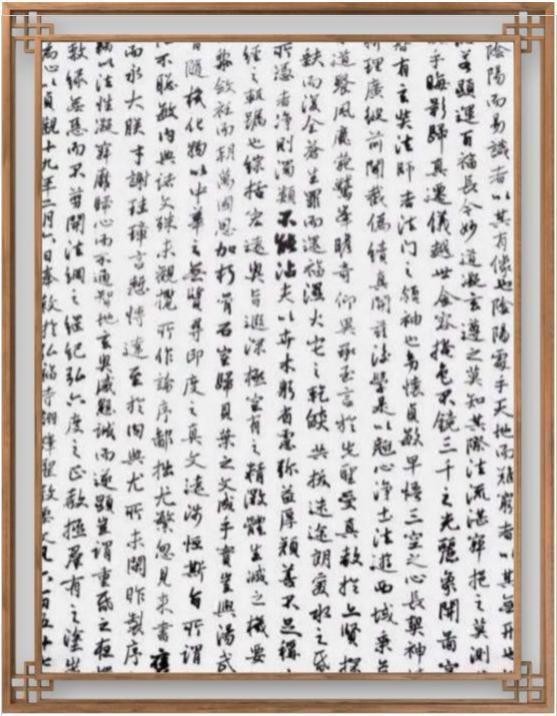 陰陽而易識者以其有像也陰陽處乎天地而難窮者以其無形也
顯運百福長今妙道凝玄遵之莫知其際法流湛寂挹之莫測
乎晦影歸真遷儀越世金容掩色不鏡三千之光麗象開圖空
有玄奘法師者法門之領袖也幼懷貞敏早悟三空之心長契神
析理廣彼前聞截偽續真開茲後學是以翹心淨土法遊西域乘危
道餐風鹿苑鷲峰瞻奇仰異承至言於先聖受真教於上賢探
缺而復全蒼生罪而還福濕火宅之乾燄共拔迷途朗愛水之昏
所憑者淨則濁類不能沾夫以卉木躬省慮弥益厚顏善不足稱
經之軌躅也綜括宏遠奧旨遐深極空有之精微體生滅之機要
黎斂衽而朝萬國恩加朽骨石室歸貝葉之文成乎實豈與湯武
隨機化物以中華之無質尋印度之真文遠涉恒斯旨所謂
不聰敏内典諸文殊未觀攬所作論序鄙拙尤繁忽見來書褒
而永大朕才謝珪璋言慚博達至於内典尤所未閑昨製序
以法性凝寂靡歸心而不通智地玄奧感懇誠而遂顯豈謂重昏之夜燭
教緣無惡而不翦開法網之綱紀弘六度之正教拯群有之塗炭
為心以貞觀十九年二月六日奉敕於弘福寺翻譯聖教要文凡六百五十七